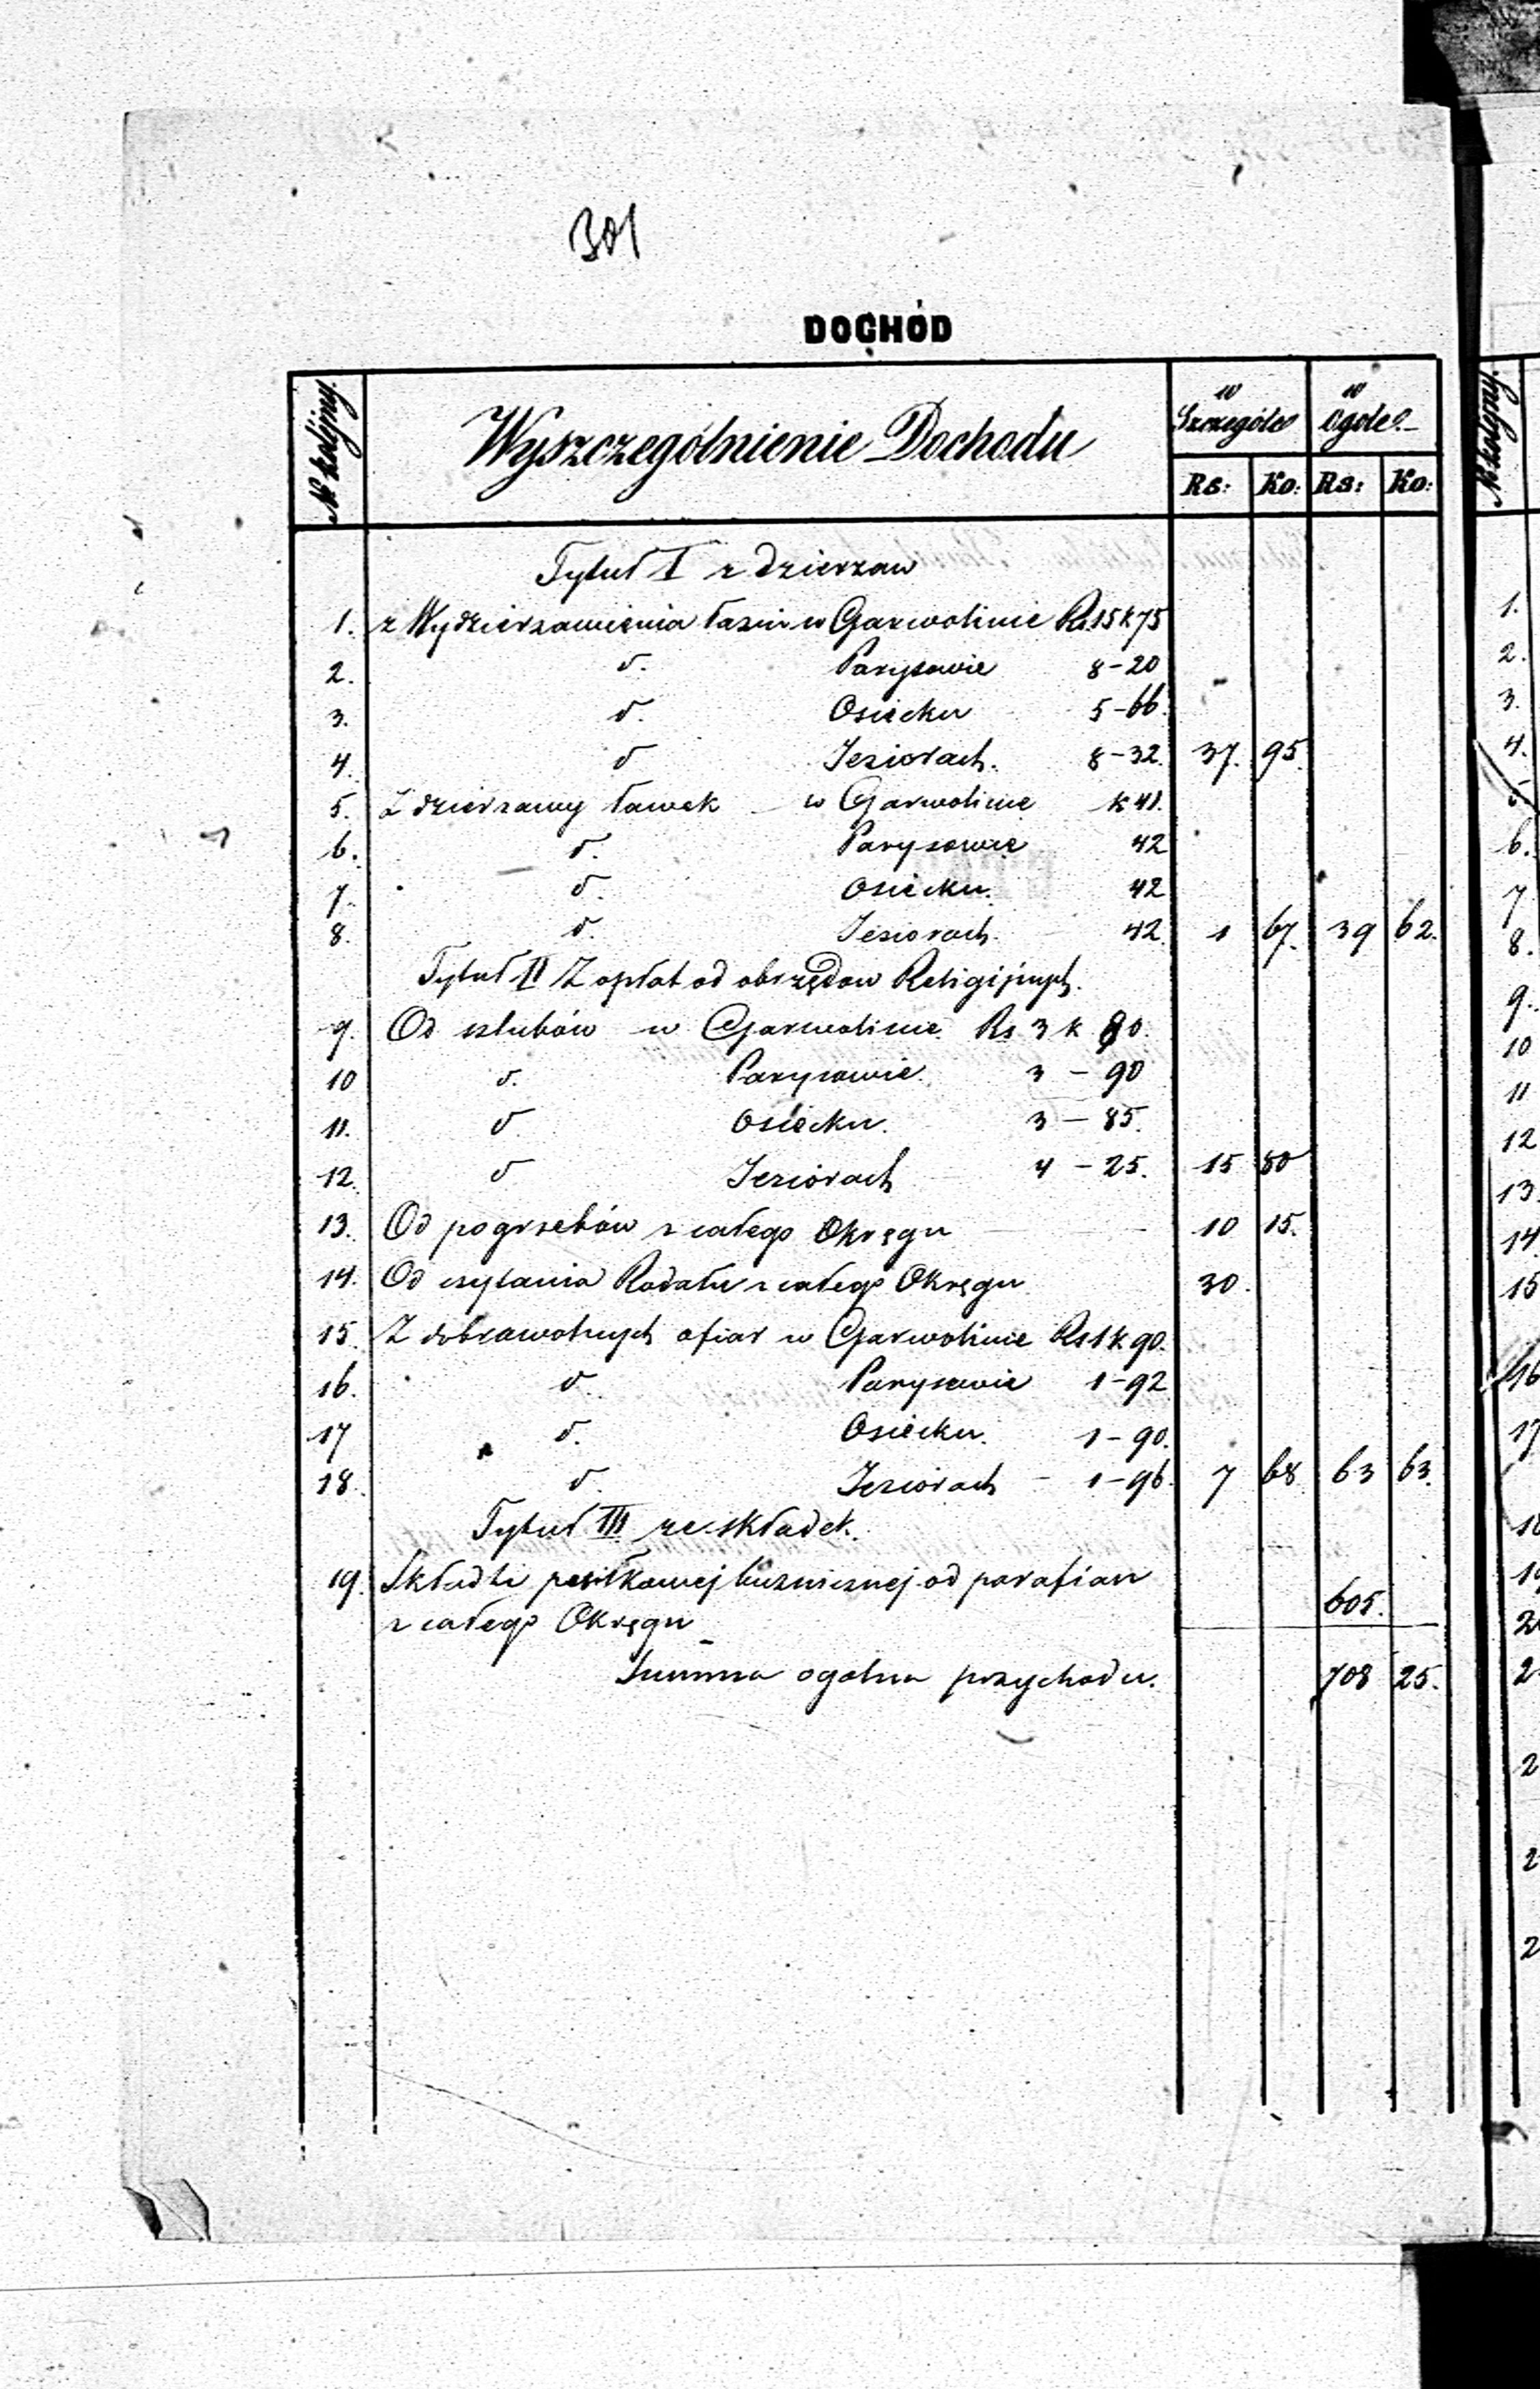 301
DOCHÓD
№ kolejny. Wyszczególnienie Dochodu w Szczególe w Ogóle
Rs: Ko: Rs: Ko:
Tytuł I z dzierzaw
1. z Wydzierzawienia łazni w Garwolinie Rs.15 k 75
2. d. Parysowie 8-20
3. d. Osiecku 5-66.
4. d Jeziorach. 8-32. 37. 95.
5. Z dzierzawy ławek w Garwolinie k 41.
6. d. Parysowie 42
7. d. Osiecku. 42
8. d. Jeziorach. 42. 1 67. 39 62.
Tytuł II Z opłat od obrzędow Religijnych.
9. Od szlubów w Garwolinie Rs 3 k 80.
10 d. Parysowie. 3 - 90
11. d Osiecku. 3 - 85.
12. d Jeziorach 4 - 25. 15 80
13. Od pogrzebów z całego Okręgu 10 15.
14. Od czytania Rodału z całego Okręgu 30.
15. Z dobrowolnych ofiar w Garwolinie Rs 1 k 90.
16. d Parysowie 1-92
17 d. Osiecku. 1-90.
18. d. Jeziorach - 1-96. 7 68 63 63.
Tytuł III ze składek.
19. Składki bużnicznej od parafian
z całego Okręgu 605.
Summa ogolna przychodu. 708 25.
№ kolejny
1.
2.
3.
4.
6.
7
8.
9.
10
11
12
13
14
15
16
17
2
2
2